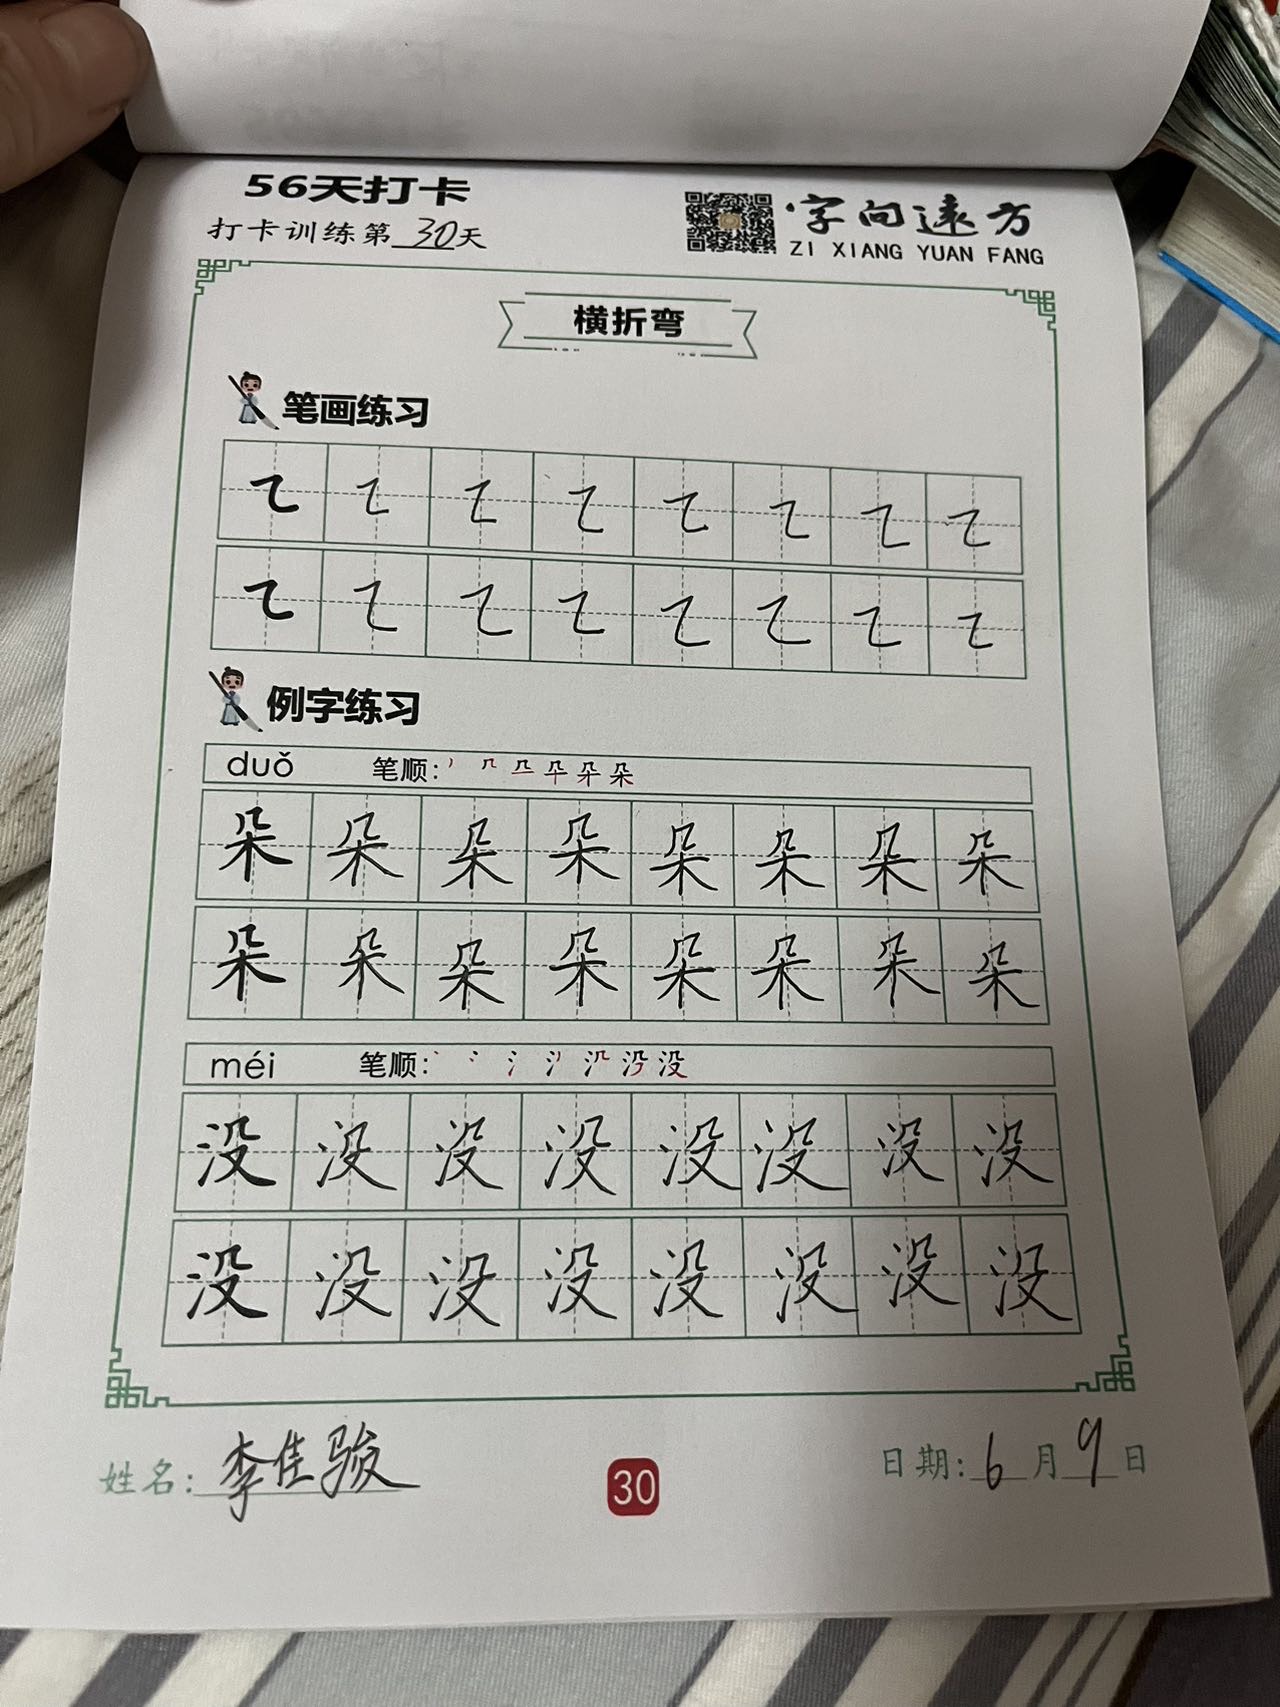 56天打卡
打卡训练第30天
字向远方
ZI XIANG YUAN FANG
横折弯
笔画练习
㇍㇍㇍㇍㇍㇍㇍㇍
㇍㇍㇍㇍㇍㇍㇍㇍
例字练习
duǒ 笔顺：
朵朵朵朵朵朵朵朵
朵朵朵朵朵朵朵朵
méi 笔顺：
没没没没没没没没
没没没没没没没没
姓名：李佳骏
30
日期：6月9日